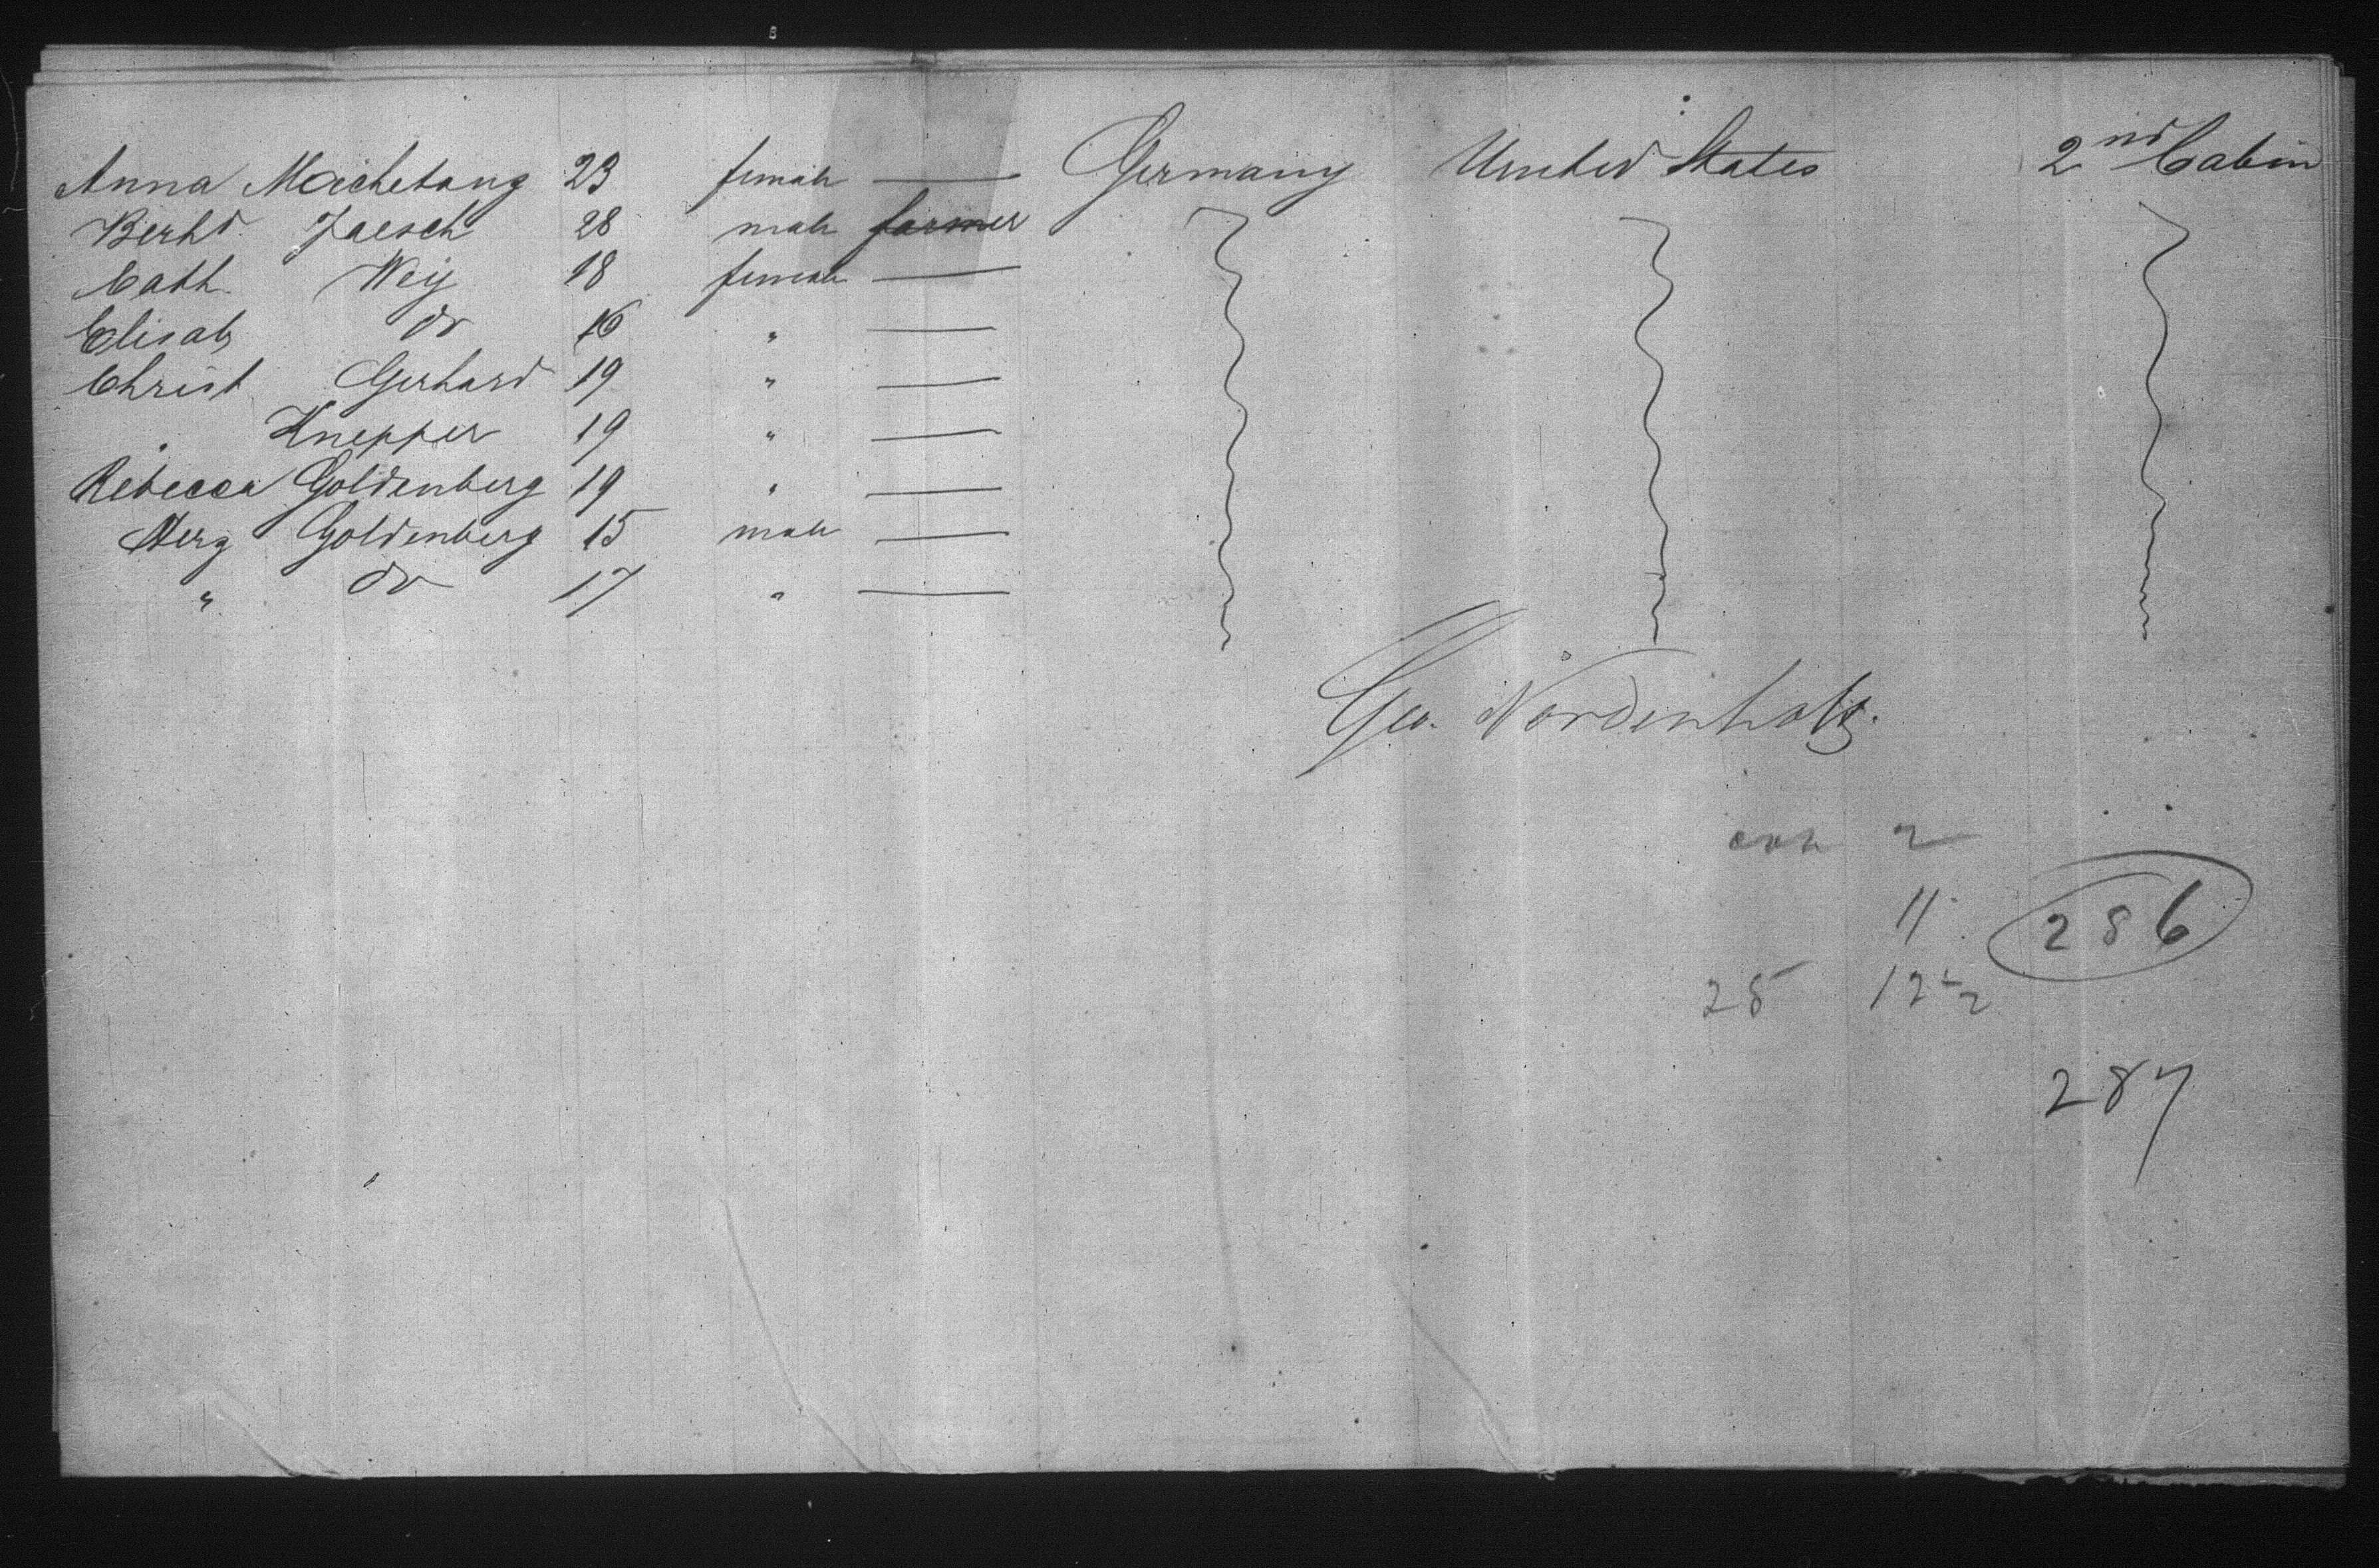 Anna Machetang 23 female — Germany United States 2nd Cabin
Berhd. Jaesch 28 male farmer
Cath. Weij 18 female —
Elisab do 16 " —
Christ Gerhard 19 " —
" Knepper 19 " —
Rebecca Goldenberg 19 " —
Herz Goldenberg 15 male —
" do 17 " —
Geo. Nordenholz.
2
11
286
28 12
287